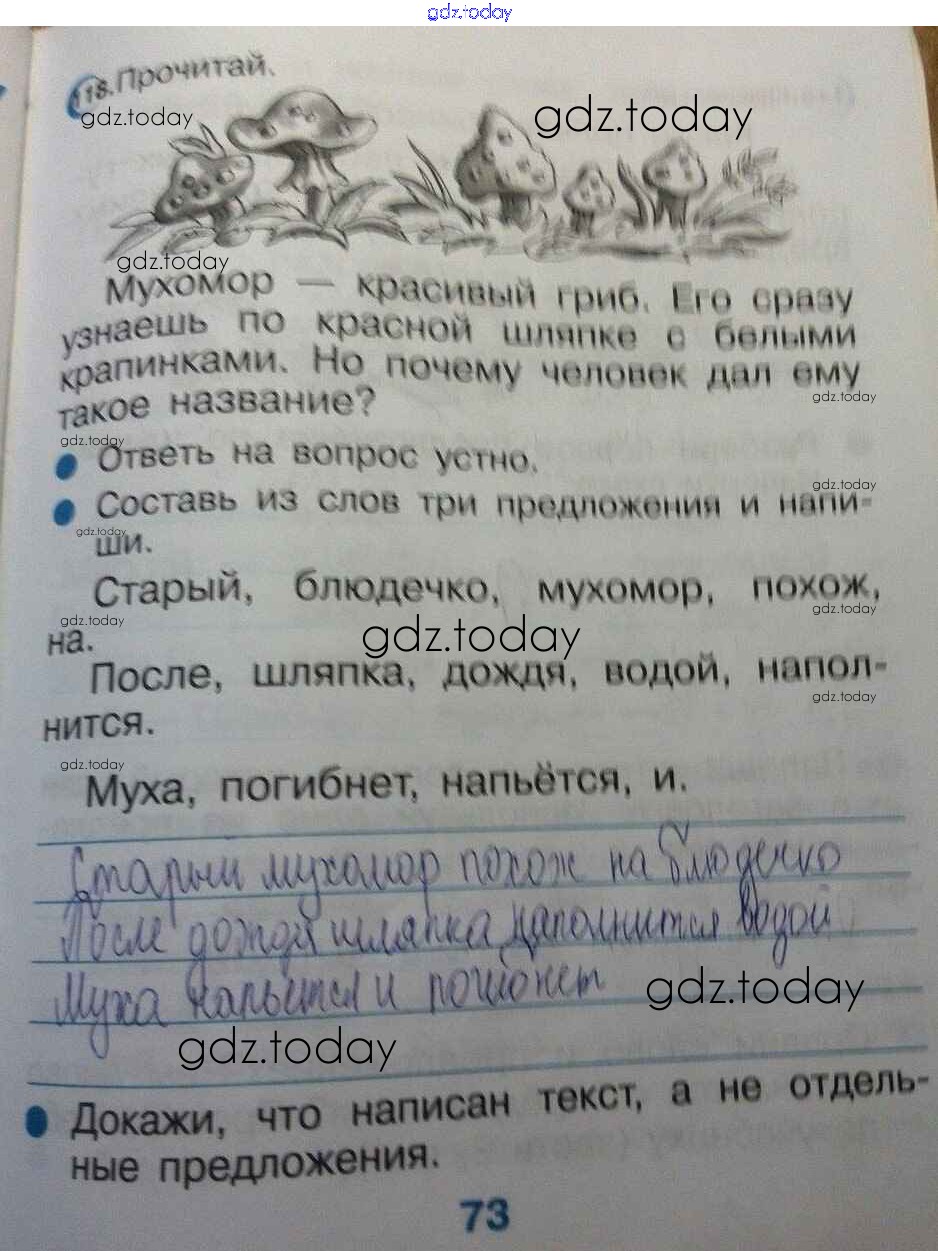 gdz.today
118. Прочитай.
gdz.today
gdz.today
gdz.today
Мухомор — красивый гриб. Его сразу
узнаешь по красной шляпке с белыми
крапинками. Но почему человек дал ему
gdz.today
такое название?
gdz.today
Ответь на вопрос устно.
gdz.today
Составь из слов три предложения и напи-
gdz.today
ши.
Старый, блюдечко, мухомор, похож,
gdz.today
gdz.today
на.
gdz.today
После, шляпка, дождя, водой, напол-
gdz.today
нится.
gdz.today
Муха, погибнет, напьётся, и.
Старый мухомор похож на блюдечко
После дождя шляпка наполнится водой
Муха напьется и погибнет
gdz.today
gdz.today
Докажи, что написан текст, а не отдель-
ные предложения.
73